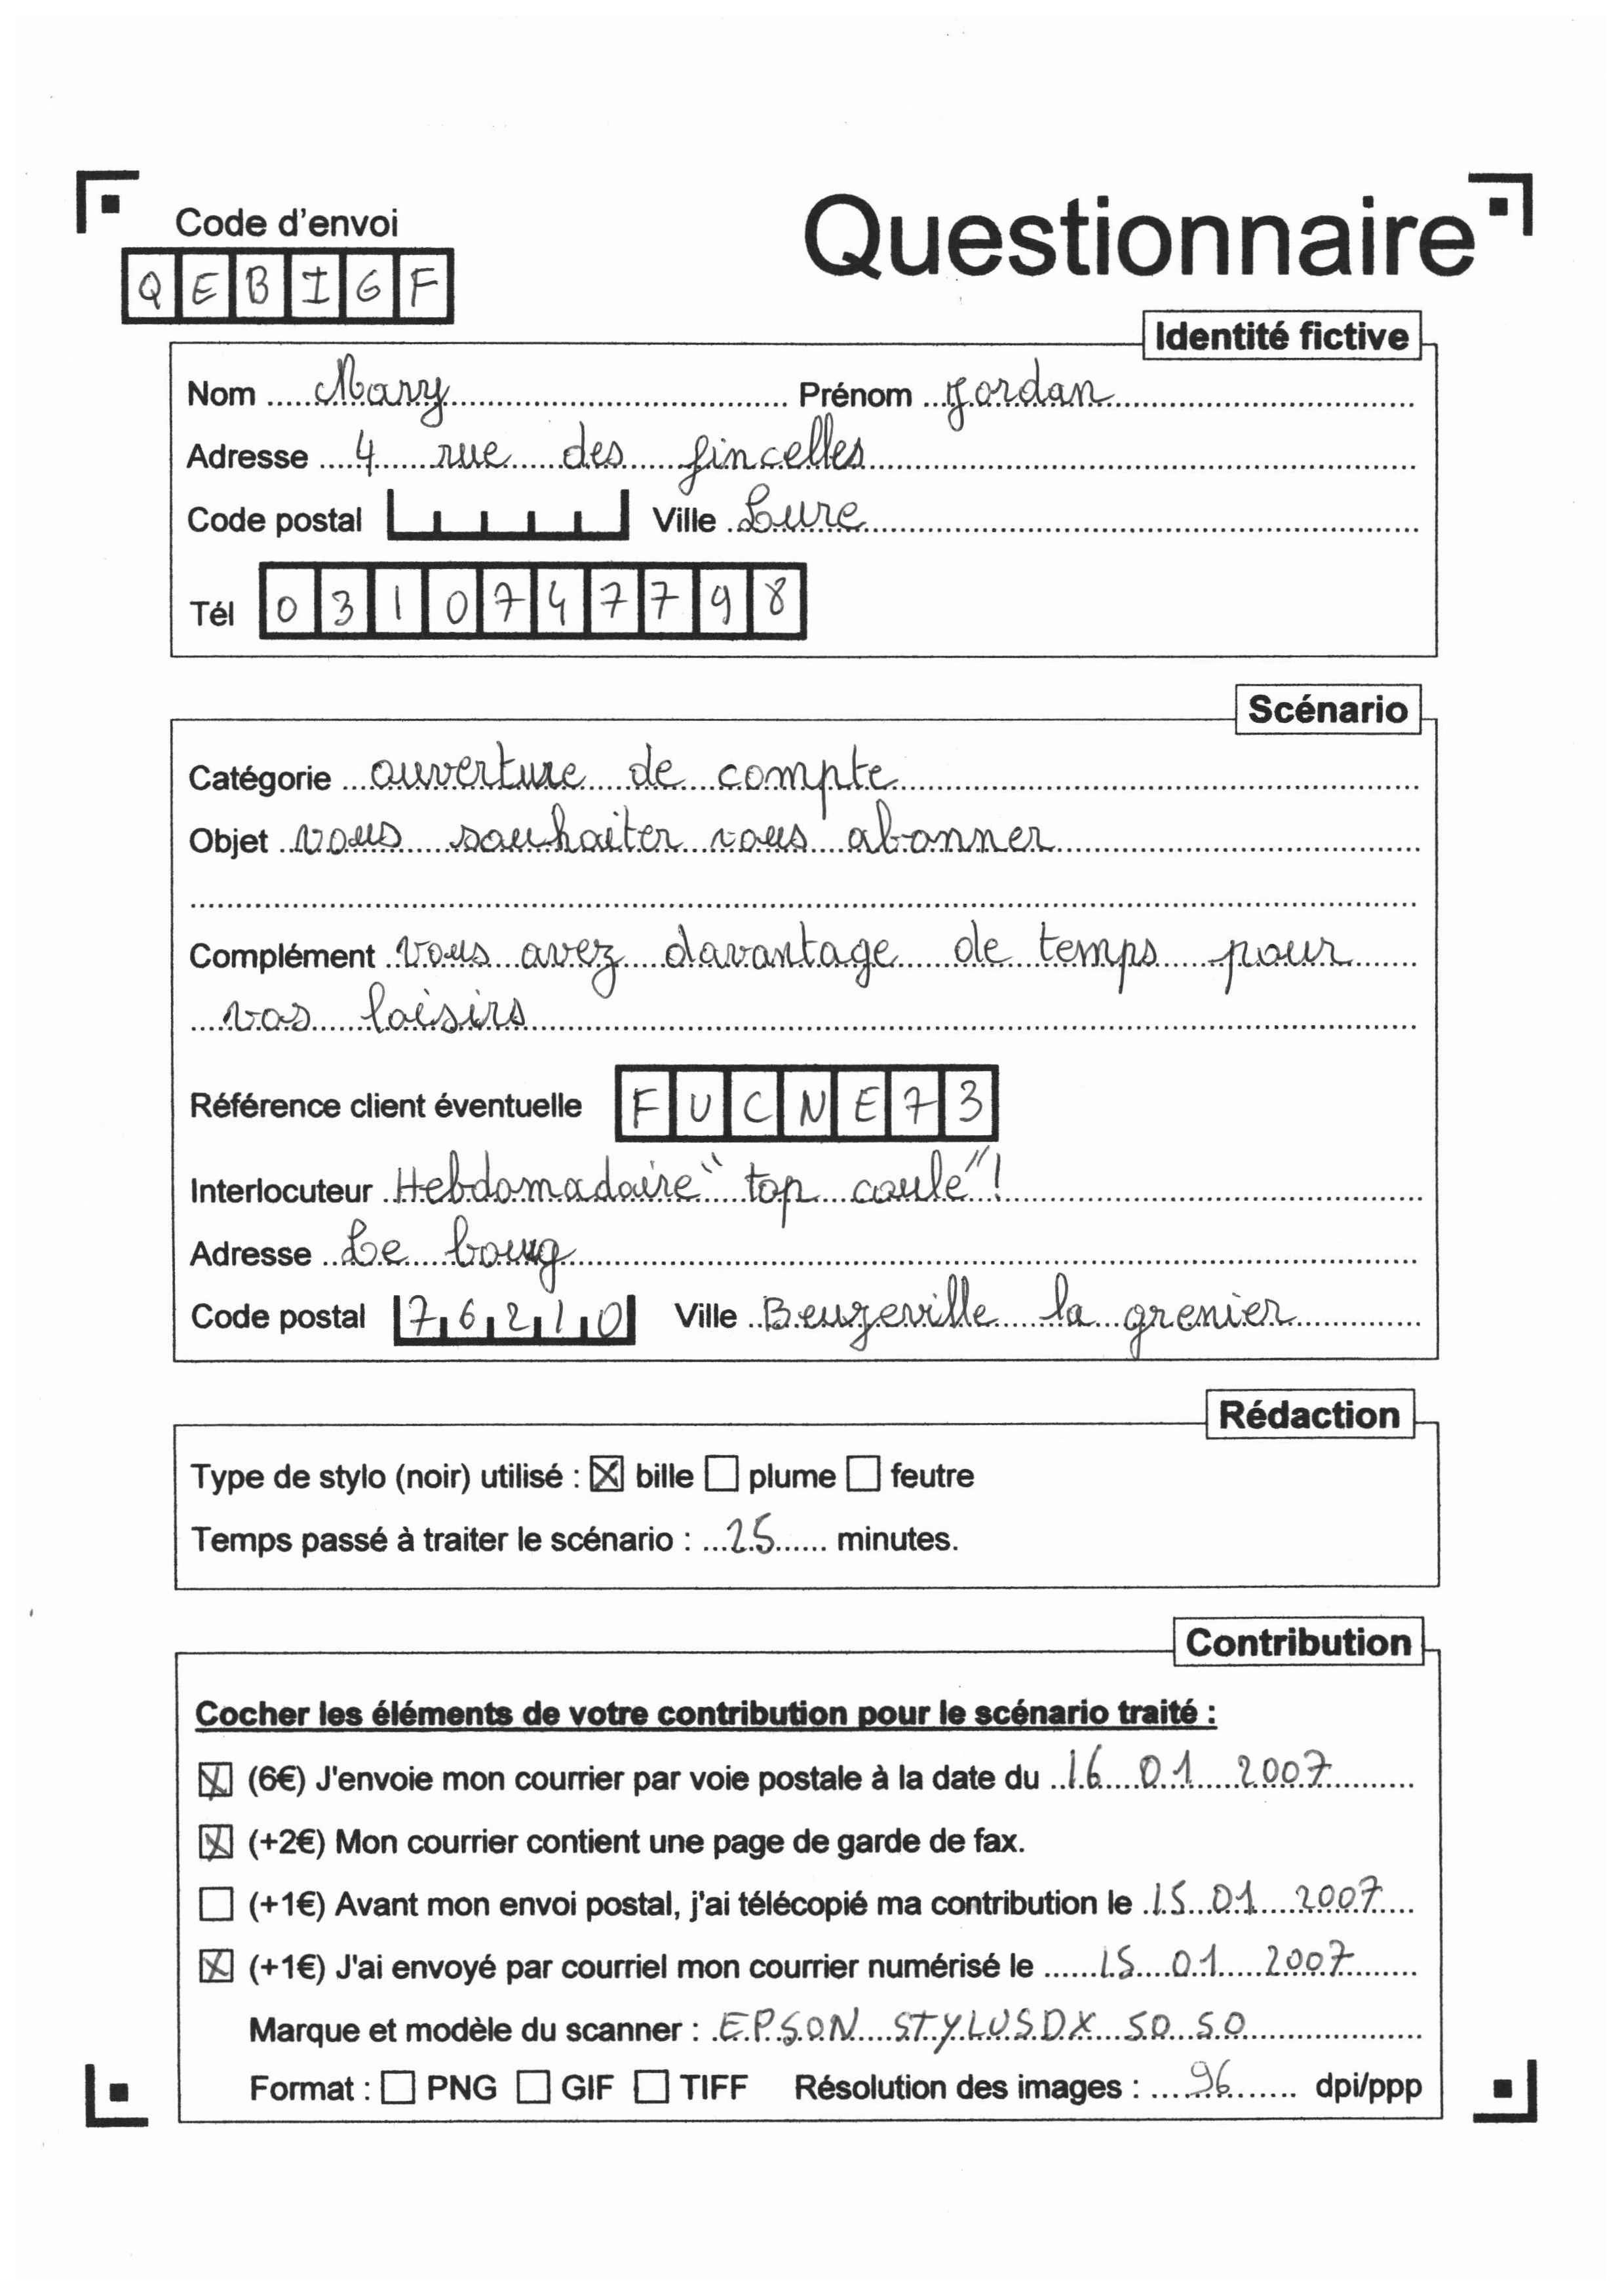 Code d'envoi
Questionnaire
QEBIGF
Identité fictive
Nom Mary Prénom Jordan
Adresse 4 rue des fincelles
Code postal Ville Lure
Tél 0310747798
Scénario
Catégorie ouverture de compte
Objet vous souhaiter vous abonner
Complément Vous avez davantage de temps pour
vos loisirs
Référence client éventuelle FUCNE73
Interlocuteur Hebdomadaire "top coule"!
Adresse Le bourg
Code postal 76210 Ville Beuzeville la grenier
Rédaction
Type de stylo (noir) utilisé : ☒ bille ☐ plume ☐ feutre
Temps passé à traiter le scénario : 25 minutes.
Contribution
Cocher les éléments de votre contribution pour le scénario traité :
☒ (6€) J'envoie mon courrier par voie postale à la date du 16 01 2007
☒ (+2€) Mon courrier contient une page de garde de fax.
☐ (+1€) Avant mon envoi postal, j'ai télécopié ma contribution le 15 01 2007
☒ (+1€) J'ai envoyé par courriel mon courrier numérisé le 15 01 2007
Marque et modèle du scanner : EPSON STYLUSDX 50 50
Format : ☐ PNG ☐ GIF ☐ TIFF Résolution des images : 96 dpi/ppp